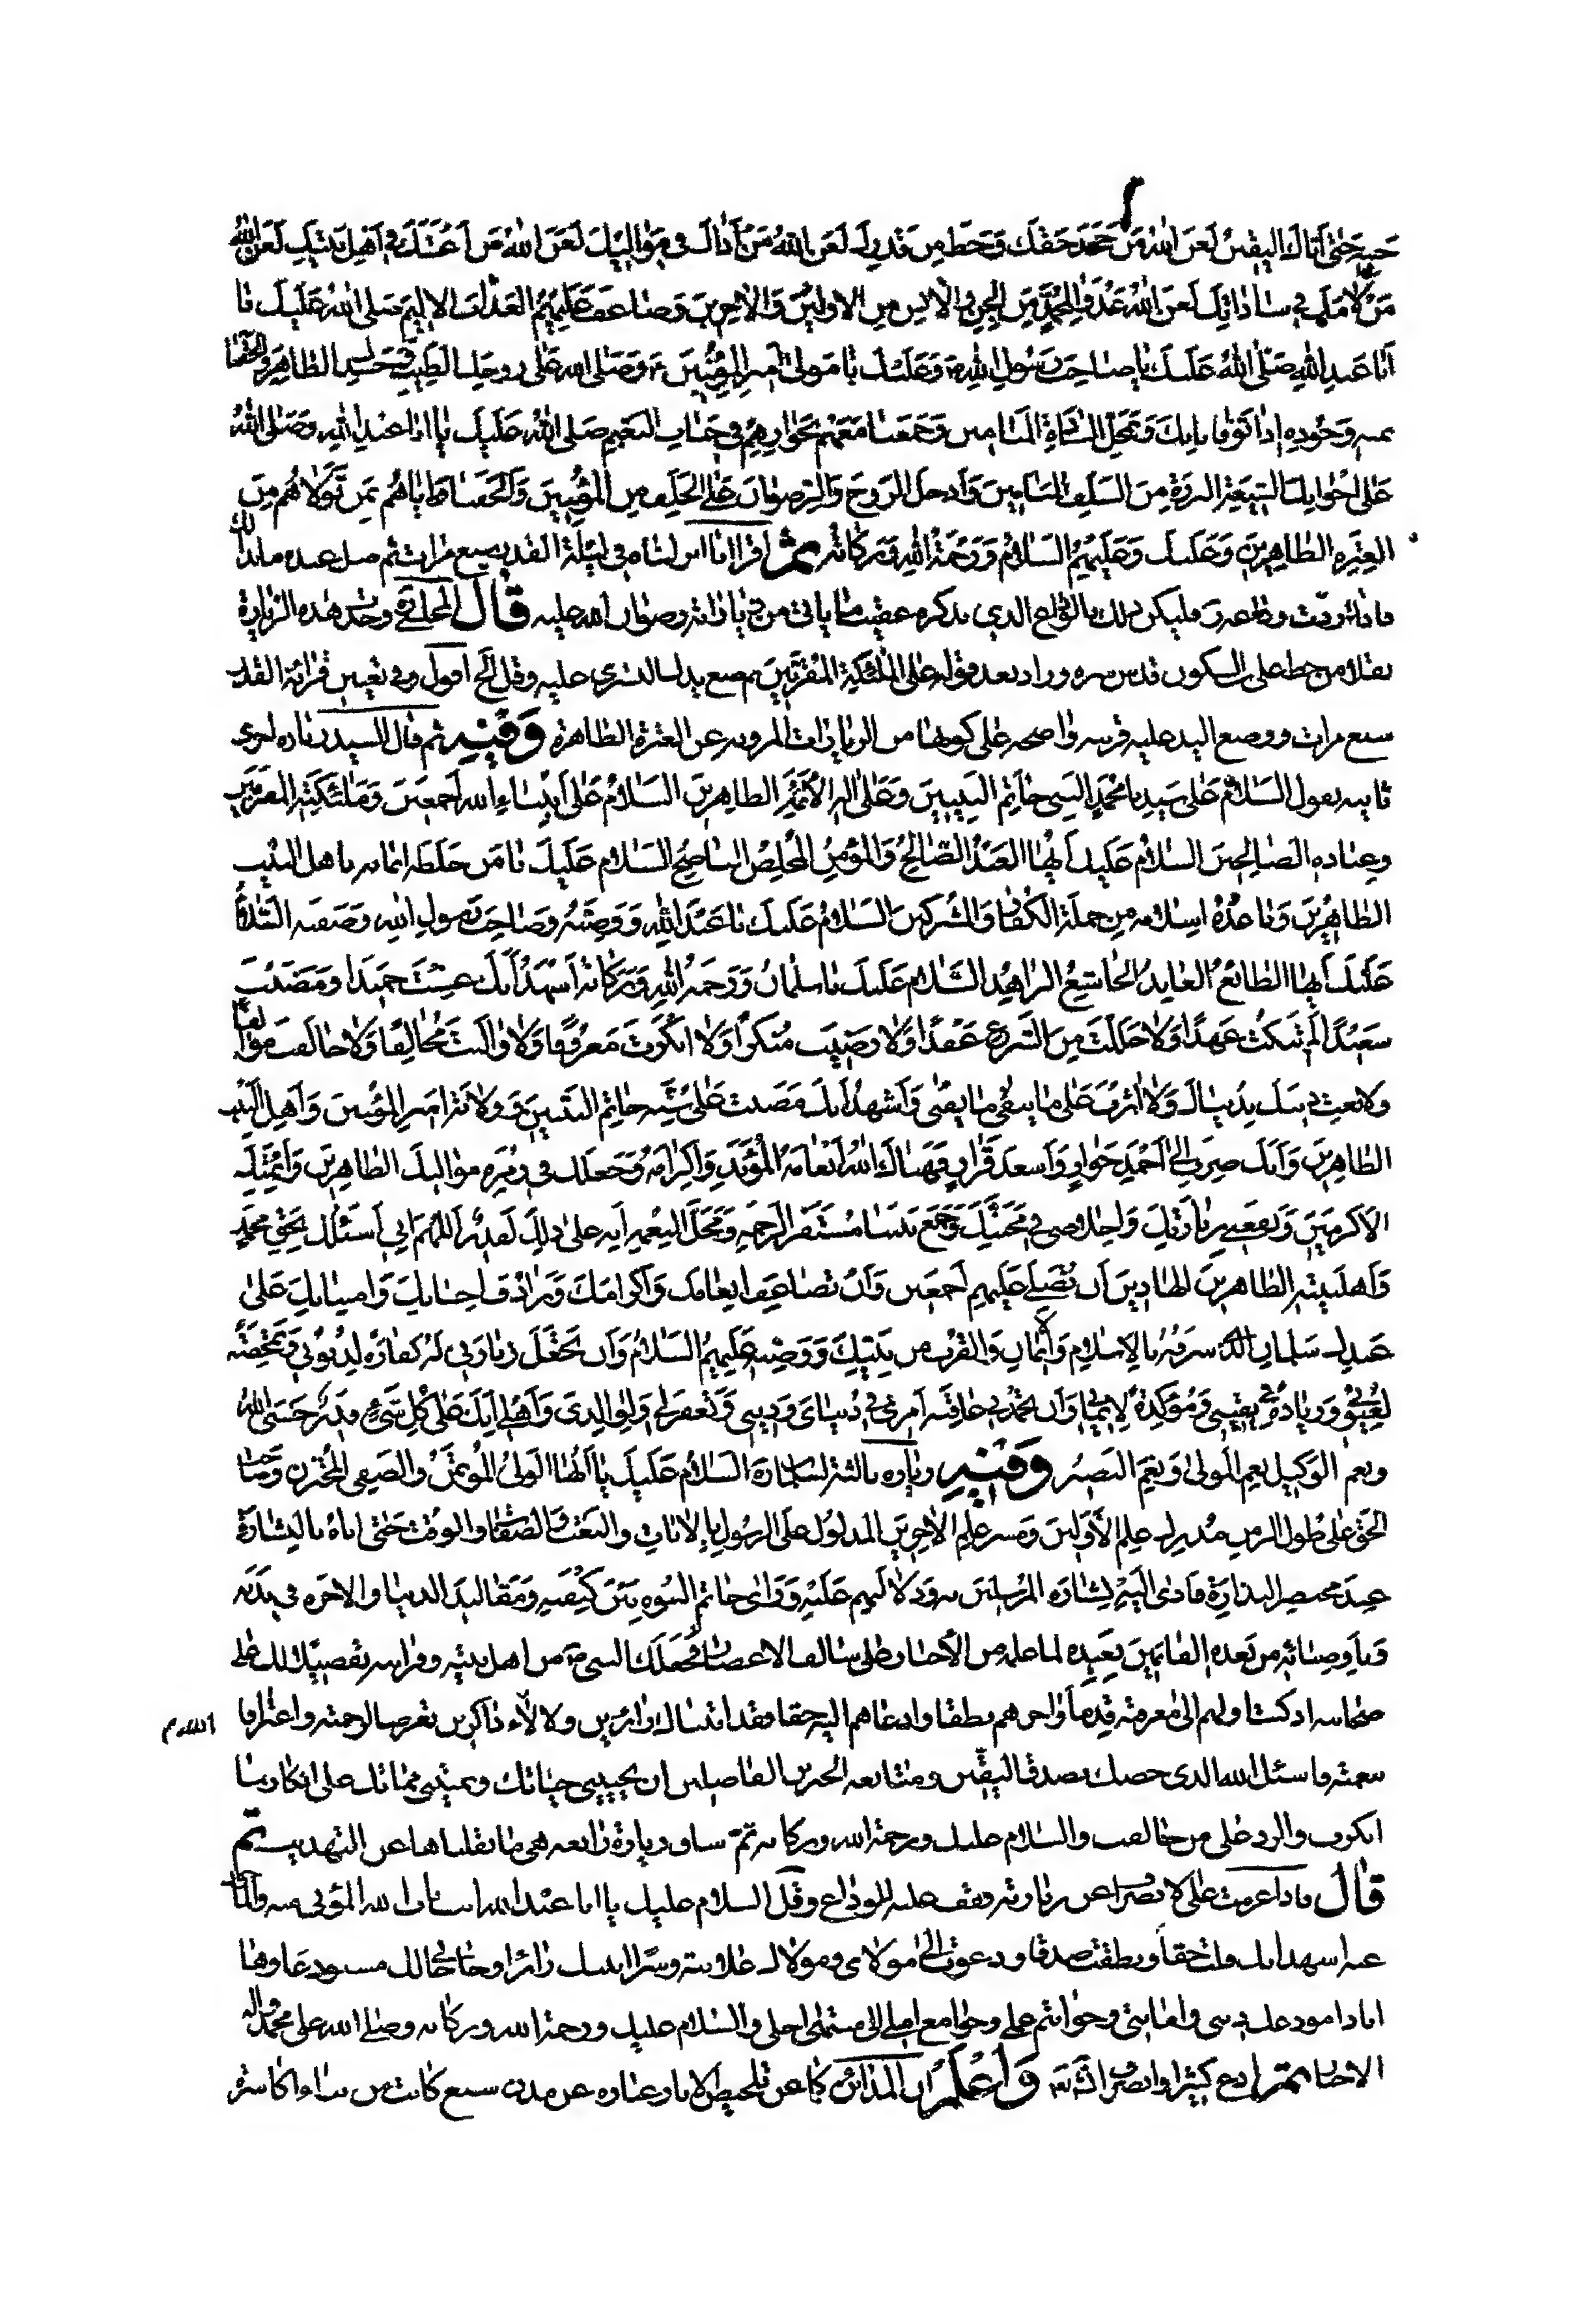 حميد حتى أتاك اليقين لعن الله من جحد حقك وحط من قدرك لعن الله من آذاك في مواليك لعن الله من أعنتك في أهل بيتك لعن الله
من لامك في ساداتك لعن الله عدو آل محمد من الجن والإنس من الأولين والآخرين وضاعف عليهم العذاب الأليم صلى الله عليك يا
أبا عبد الله صلى الله عليك يا صاحب رسول الله وعليك يا مولى أمير المؤمنين وصلى الله على روحك الطيبة وجسدك الطاهر وألحقنا
بمنه وجوده إذا توفانا بك وبمحل السادة الميامين وجمعنا معهم بجوارهم في جنات النعيم صلى الله عليك يا أبا عبد الله وصلى الله
على إخوانك الشيعة البررة من السلف الميامين وأدخل الروح والرضوان على الخلف من المؤمنين وألحقنا وإياهم بمن تولاهم من
العترة الطاهرين وعليك وعليهم السلام ورحمة الله وبركاته ثم اقرأ إنا أنزلناه في ليلة القدر سبع مرات ثم صل عنده ما بدا لك
فإذا أردت وداعه فليكن ذلك بالوداع الذي نذكره عقيب ما يأتي من زياراته رضوان الله عليه قال المجلسي وجدت هذه الزيارة
نقلا من خط علي بن السكون قدس سره وزاد بعد قوله على الملائكة المقربين ثم ضع يدك اليسرى عليه وقل الخ أقول وفي تعيين قراءة القدر
سبع مرات ووضع اليد عليه قرينة واضحة على كونها من الزيارات المروية عن العترة الطاهرة وفيه ثم قال السيد زيارة أخرى
ثانية يقول السلام على سيدنا محمد النبي خاتم النبيين وعلى آله الأئمة الطاهرين السلام على أنبياء الله أجمعين وملائكته المقربين
وعباده الصالحين السلام عليك أيها العبد الصالح والمؤمن المخلص الناصح السلام عليك يا من خلطه إيمانه بأهل البيت
الطاهرين وباعده إسلامه من جملة الكفار والمشركين السلام عليك يا عبد الله ووصيه وصاحب رسول الله وصفيه السلام
عليك أيها الطائع العابد الخاشع الزاهد السلام عليك يا سلمان ورحمة الله وبركاته أشهد أنك عشت حميدا ومضيت
سعيدا لم تنكث عهدا ولا حللت من الشرع عقدا ولا رضيت منكرا ولا أنكرت معروفا ولا واليت مخالفا ولا خالفت موالفا
ولا بعت دينك بدنياك ولا آثرت على ما يبقى ما يفنى وأشهد أنك مضيت على سنة خاتم النبيين وولاية أمير المؤمنين وأهل البيت
الطاهرين وأنك صرت إلى أحمد جوار وأسعد قرار فهناك الله إنعامه المؤبد وإكرامه وجعلك في زمرة مواليك الطاهرين وأئمتك
الأكرمين ونفعني بزيارتك وإخلاصي في محبتك وجمع بيننا مستقر الرحمة ومحل النعيم إنه على ذلك لقدير اللهم إني أسئلك بحق محمد
وأهل بيته الطاهرين الهادين أن تصلي عليهم أجمعين وأن تضاعف إنعامك وإكرامك وترادف إحسانك وامتنانك على
عبدك سلمان الذي شرفته بالإسلام والإيمان والقرب من نبيك ووصيه عليهم السلام وأن تجعل زيارتي له كفارة لذنوبي وتمحيصا
لعيوبي وزيادة في يقيني ومؤكدة لإيماني وأن تحمدني عاقبة أمري في دنياي وديني وتغفر لي ولوالدي وأهلي إنك على كل شيء قدير حسبي الله
ونعم الوكيل نعم المولى ونعم النصير وفيه زيارة ثالثة لسلمان السلام عليك يا أيها الولي المؤتمن والصفي المختزن
الحق على طول الزمن مدرك علم الأولين ومسر علم الآخرين المدلول على الرسول بالآيات والنعت والصفات والوقت حتى أتاه بالبشارة
عند محضر النذارة فأدى إليه بشارة المرسلين به ودلالتهم عليه ورأى خاتم النبوة بين كتفيه ومقاليد الدنيا والآخرة في يديه
وبأوصيائه من بعده القائمين بعهده لما علمه من الأخبار على سالف الأعصار فجعلك النبي من أهل بيته وقرابته تفضيلا لك على
صحابته إذ كنت أولهم إلى معرفته قدما وأحراهم نطقا وادعاهم إليه حقا فقد أتيناك زائرين ولآلاء الله ذاكرين تعرضا لرحمته واعترافا
بنعمته فاسئل الله الذي خصك بصدق اليقين ومتابعة الخيرين الفاضلين أن يحييني حياتك ويميتني مماتك على إنكار ما
أنكرت والرد على من خالفت والسلام عليك ورحمة الله وبركاته ثم ساق زيارة رابعة هي ما نقلناها عن التهذيب ثم
قال فإذا عزمت على الانصراف عن زيارته فقف عليه للوداع وقل السلام عليك يا أبا عبد الله أنت باب الله المؤتى منه والمأخوذ
عنه أشهد أنك قلت حقا ونطقت صدقا ودعوت إلى مولاي ومولاك علانية وسرا أتيتك زائرا وحاجاتي لك مستودعا وها
أنا ذا مودعك ديني وأمانتي وخواتيم عملي وجوامع أملي إلى منتهى أجلي والسلام عليك ورحمة الله وبركاته وصلى الله على محمد وآله
الأخيار ثم ادع كثيرا وانصرف انتهى واعلم أن المدائن كما عن تلخيص الآثار عبارة عن مدن سبع كانت من بناء أكاسرة